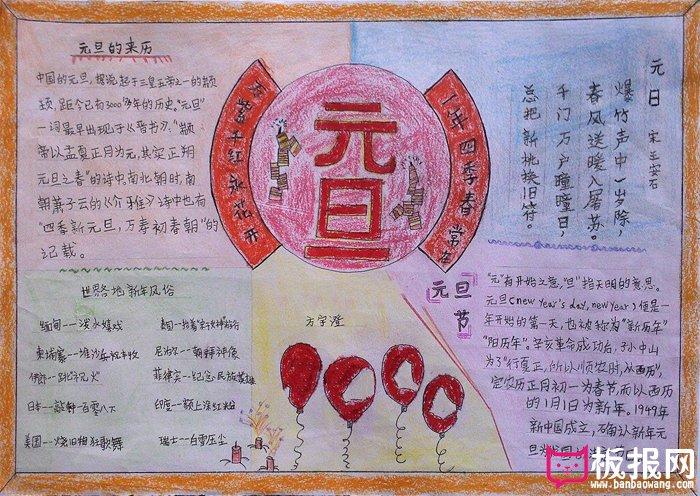 元旦的来历
中国的元旦，据说起于三皇五帝之一的颛
顼，距今已有3000多年的历史。"元旦"
一词最早出现于《晋书》，"颛
帝以孟夏正月为元，其实正朔
元旦之春"的诗中。南北朝时，南
朝萧子云的《介雅》诗中也有
"四季新元旦，万寿初春朝"的
记载。
万紫千红永花开
元
旦
一年四季春常在
元日
宋 王安石
爆竹声中一岁除，
春风送暖入屠苏。
千门万户瞳瞳日，
总把新桃换旧符。
世界各地新年风俗
缅甸---泼水嬉戏
柬埔寨---堆沙
伊朗---跳
日本---敲钟一百零八下
美国---烧旧相狂歌舞
泰国---抬着
尼泊尔---朝拜神像
菲律宾---纪念民族英雄
印度---额上涂红粉
瑞士---白雪压尘
方宇澄
元旦
节
"元"有开始之意，"旦"指天明的意思。
元旦(new year's day, new year)便是一
年开始的第一天，也被称为"新历年"
"阳历年"。辛亥革命成功后，孙中山
为了"行夏正，所以顺农时，从西历"，
定农历正月初一为春节，而以西历
的1月1日为新年。1949年
新中国成立，
确认新年元
旦
板报网
www.banbaowang.com